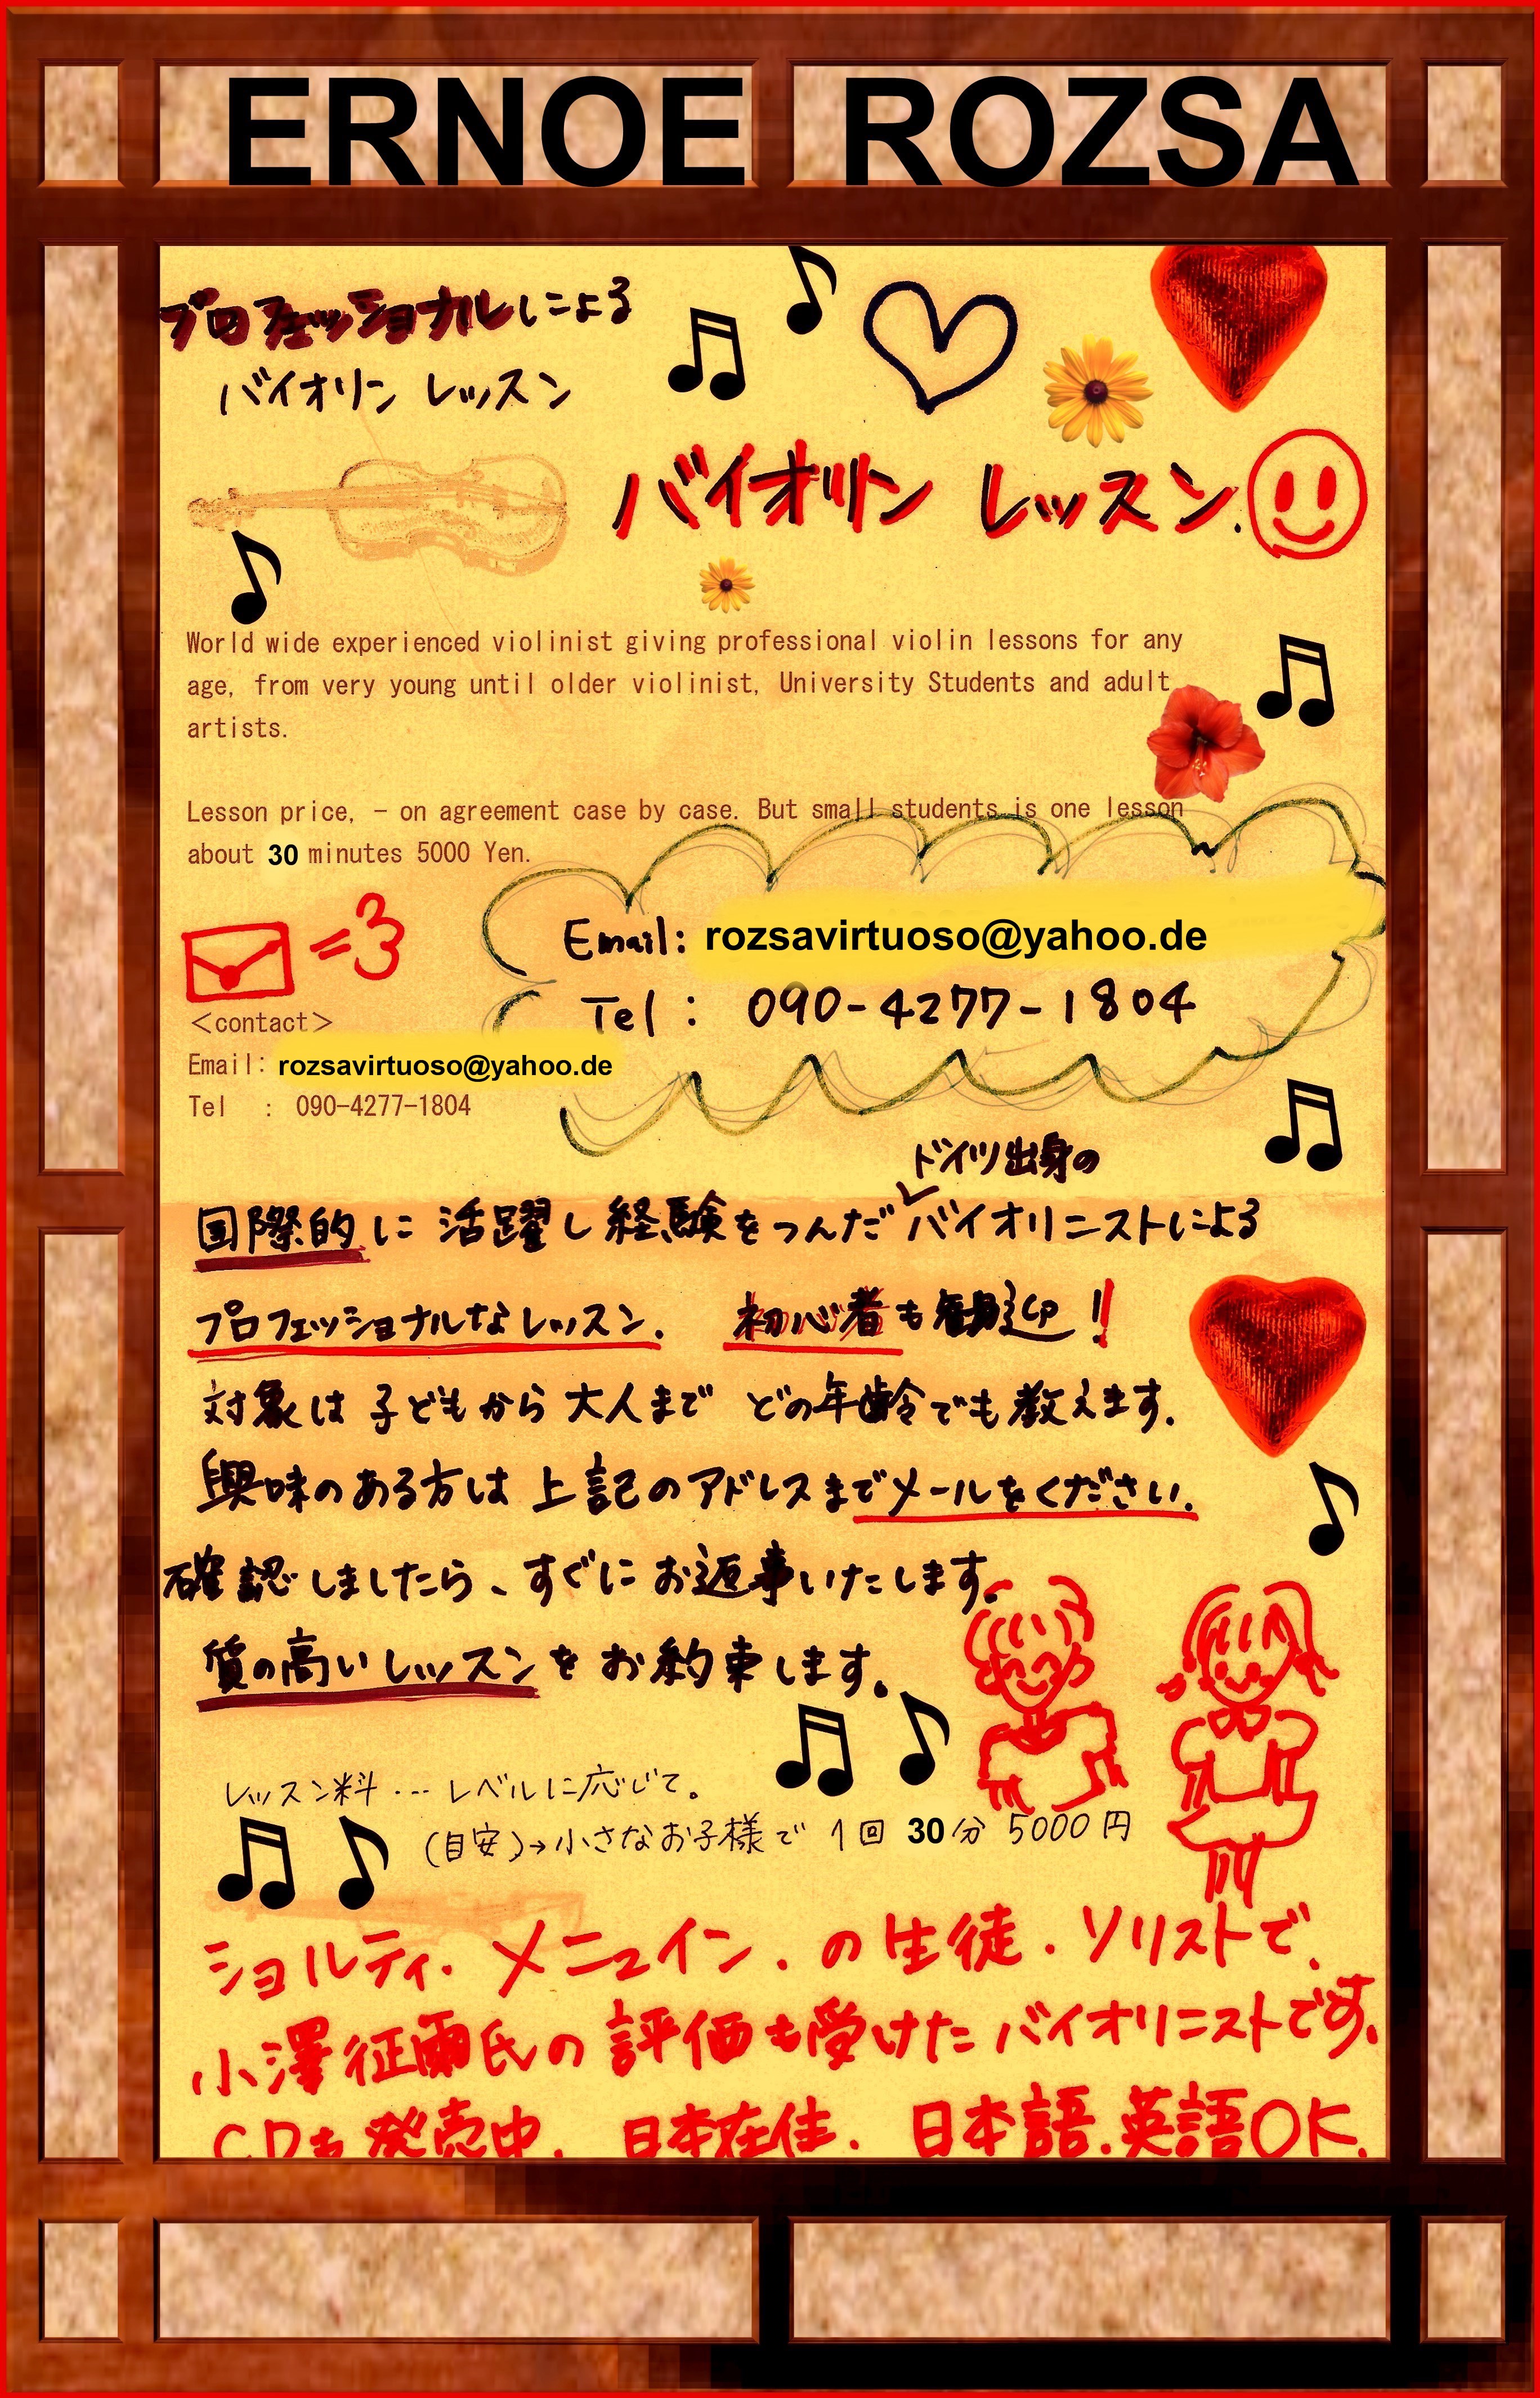 ERNOE ROZSA
プロフェッショナルによる
バイオリン レッスン
バイオリン レッスン.
World wide experienced violinist giving professional violin lessons for any
age, from very young until older violinist, University Students and adult
artists.
Lesson price, – on agreement case by case. But small students is one lesson
about 30 minutes 5000 Yen.
Email: rozsavirtuoso@yahoo.de
Tel : 090-4277-1804
<contact>
Email: rozsavirtuoso@yahoo.de
Tel : 090-4277-1804
ドイツ出身の
国際的に活躍し経験をつんだバイオリニストによる
プロフェッショナルなレッスン. 初心者も歓迎!
対象は子どもから大人まで どの年齢でも教えます.
興味のある方は上記のアドレスまでメールをください.
確認しましたら、すぐにお返事いたします。
質の高いレッスンをお約束します。
レッスン料・・・レベルに応じて。
(目安)→小さなお子様で 1回 30分 5000円
ショルティ.メニューイン.の生徒.ソリストで、
小澤征爾氏の評価も受けたバイオリニストです.
CDも発売中. 日本在住. 日本語.英語OK.